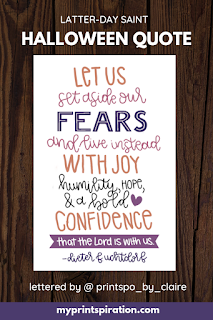 LATTER-DAY SAINT
HALLOWEEN QUOTE
LET US
set aside our
FEARS
and live instead
WITH JOY
humility, HOPE,
& a bold
CONFIDENCE
that the Lord is with us.
-dieter f uchtdorf
lettered by @ printspo_by_claire
myprintspiration.com